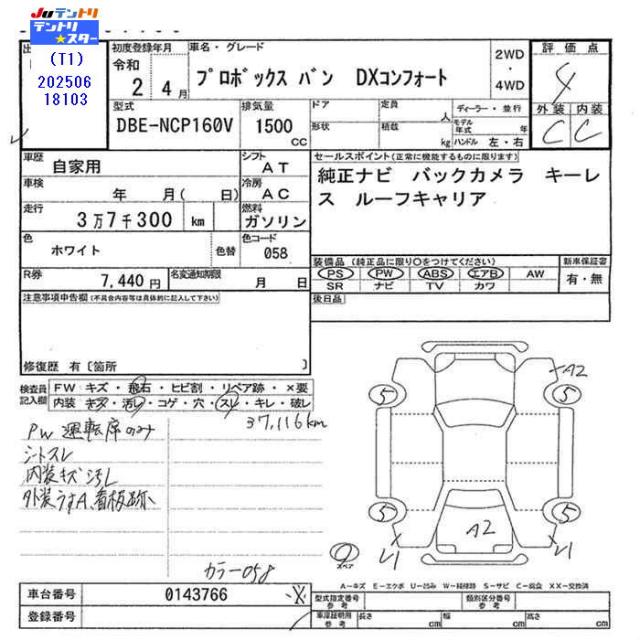 JUテントリ
テントリ★スター
(T1)
202506
18103
初度登録年月
令和
2 4月
車名・グレード
プロボックス バン DXコンフォート
2WD
・
4WD
評価点
4
外装 内装
C C
型式
DBE-NCP160V
排気量
1500
CC
ドア
形状
定員
人
積載
kg
ディーラー・並行
モデル年式 年
ハンドル 左・右
車歴
自家用
シフト
AT
車検
年 月( 日)
冷房
AC
走行
3万7千300 km
燃料
ガソリン
色
ホワイト
色替
色コード
058
R券
7,440円
名変通知期限
月 日
セールスポイント(正常に機能するものに限ります)
純正ナビ バックカメラ キーレ
ス ルーフキャリア
装備品(純正品に限り○をつけてください)
新車保証書
PS PW ABS エアB AW
SR ナビ TV カワ
有・無
後日品
注意事項申告欄(不具合内容等は具体的に記入して下さい)
修復歴 有〔箇所 〕
検査員記入欄
FW キズ・飛石・ヒビ割・リペア跡・×要
内装 キズ・汚れ・コゲ・穴・スレ・キレ・破レ
37,116km
PW運転席のみ
シートスレ
内装キズ汚レ
外装うすA、看板跡
カラー058
A2
5
5
5
5
A2
スペア
A－キズ E－エクボ U－凹み W－補修跡 S－サビ C－腐食 XX－交換済
車台番号
0143766
登録番号
型式指定番号
参考
類別区分番号
参考
車庫証明用
参考
長さ cm
幅 cm
高さ cm